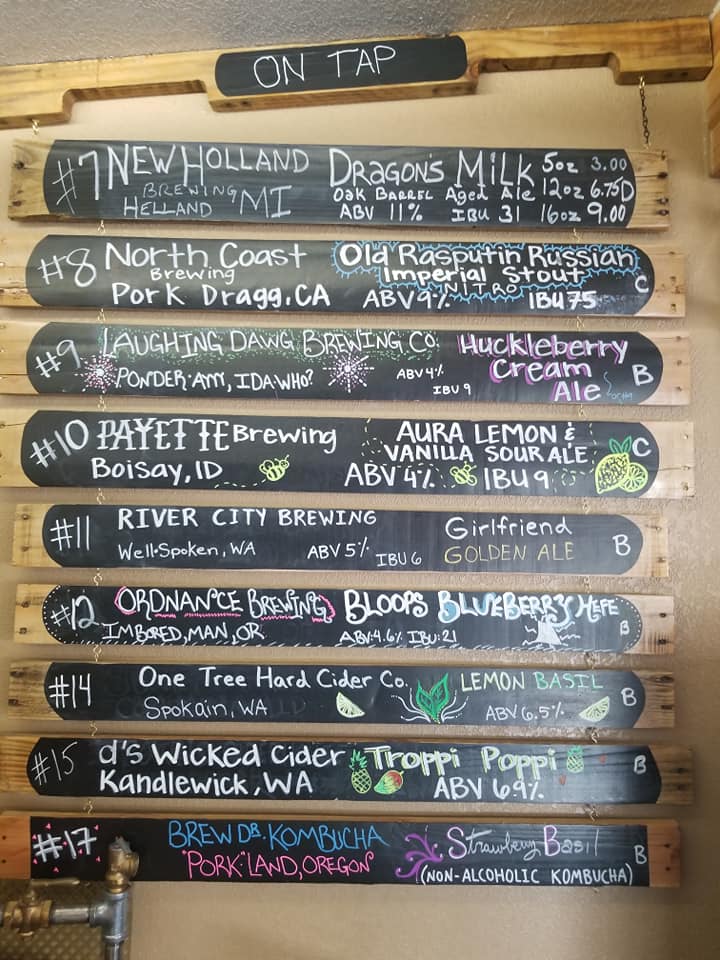 ON TAP
#7 NEW HOLLAND DRAGON'S MILK 5oz 3.00
BREWING Oak BARREL Aged Ale 12oz 6.75 D
HELLAND MI ABV 11% IBU 31 16oz 9.00
#8 North Coast Old Rasputin Russian
Brewing Imperial Stout C
NITRO
Pork Dragg, CA ABV 9% IBU 75
#9 LAUGHING DAWG BREWING CO. Huckleberry
PONDER-AMY, IDA-WHO? ABV 4% Cream B
IBU 9 Ale
#10 PAYETTE Brewing AURA LEMON & C
VANILLA SOUR ALE
Boisay, ID ABV 4% IBU 9
#11 RIVER CITY BREWING Girlfriend
Well-Spoken, WA ABV 5% IBU 6 GOLDEN ALE B
#12 ORDNANCE BREWING BLOOPS BLUEBERRY HEFE
IMBORED, MAN, OR ABV:4.6% IBU:21 B
#14 One Tree Hard Cider Co. LEMON BASIL
Spokain, WA ABV 6.5% B
#15 d's Wicked Cider Troppi Poppi B
Kandlewick, WA ABV 69%
#17 BREW DR. KOMBUCHA Strawberry Basil
"PORK"LAND, OREGON (NON-ALCOHOLIC KOMBUCHA) B